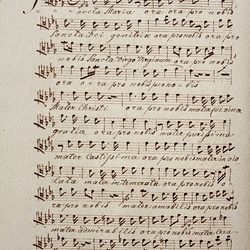 Sancta Maria ora pro nobis
Sancta Dei genitrix ora pro nobis ora pro
nobis Sancta Virgo Virginum ora pro nobis
ora - ora pro nobis pro no - bis
Mater Christi ora pro nobis mater divina
gratia ora pro nobis mater purissima
mater Castissima ora pro nobis mater in vio
lata mater intemerata ora pro nobis o
ra pro nobis mater ora pro nobis
mater admirabilis ora pro nobis mater Crea